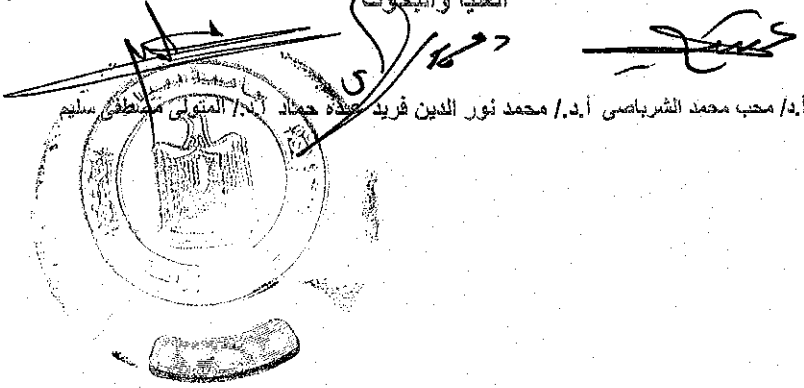 العليا والبحوث
أ.د/ محب محمد الشرباصى أ.د./ محمد نور الدين فريد عبده حماد أ.د./ المتولى مصطفى سليم